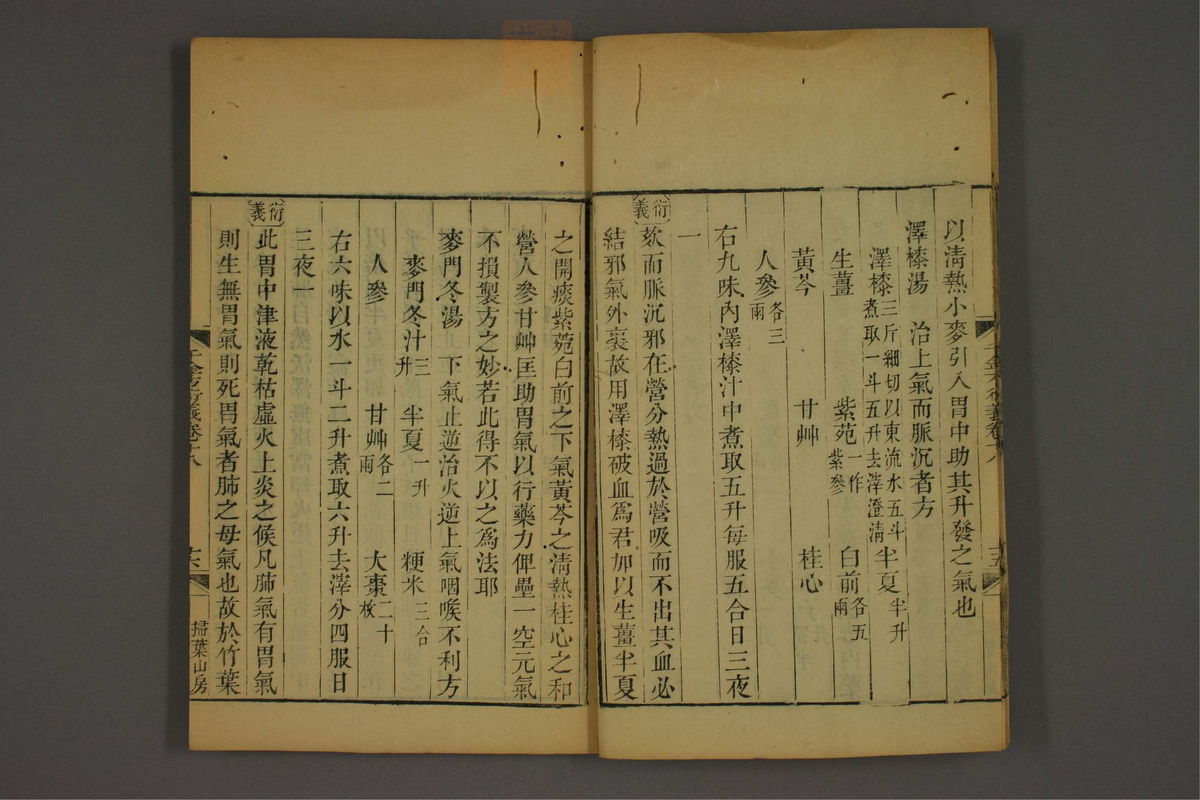 以淸熱小麥引入胃中助其升發之氣也
澤㯶湯 治上氣而脈沉者方
澤㯶三斤細切以東流水五斗煮取一斗五升去滓澄淸 半夏半升
生薑 紫苑一作紫參 白前各五兩
黃芩 甘艸 桂心
人參各三兩
右九味內澤㯶汁中煮取五升每服五合日三夜
一
衍義
欬而脈沉邪在營分熱過於營吸而不出其血必
結邪氣外裹故用澤㯶破血爲君加以生薑半夏
之開痰紫菀白前之下氣黃芩之淸熱桂心之和
營人參甘艸匡助胃氣以行藥力俾壘一空元氣
不損製方之妙若此得不以之爲法耶
麥門冬湯 下氣止逆治火逆上氣咽喉不利方
麥門冬汁三升 半夏一升 粳米三合
人參 甘艸各二兩 大棗二十枚
右六味以水一斗二升煮取六升去滓分四服日
三夜一
衍義
此胃中津液乾枯虛火上炎之候凡肺氣有胃氣
則生無胃氣則死胃氣者肺之母氣也故於竹葉
千金方衍義卷十八 十六 掃葉山房